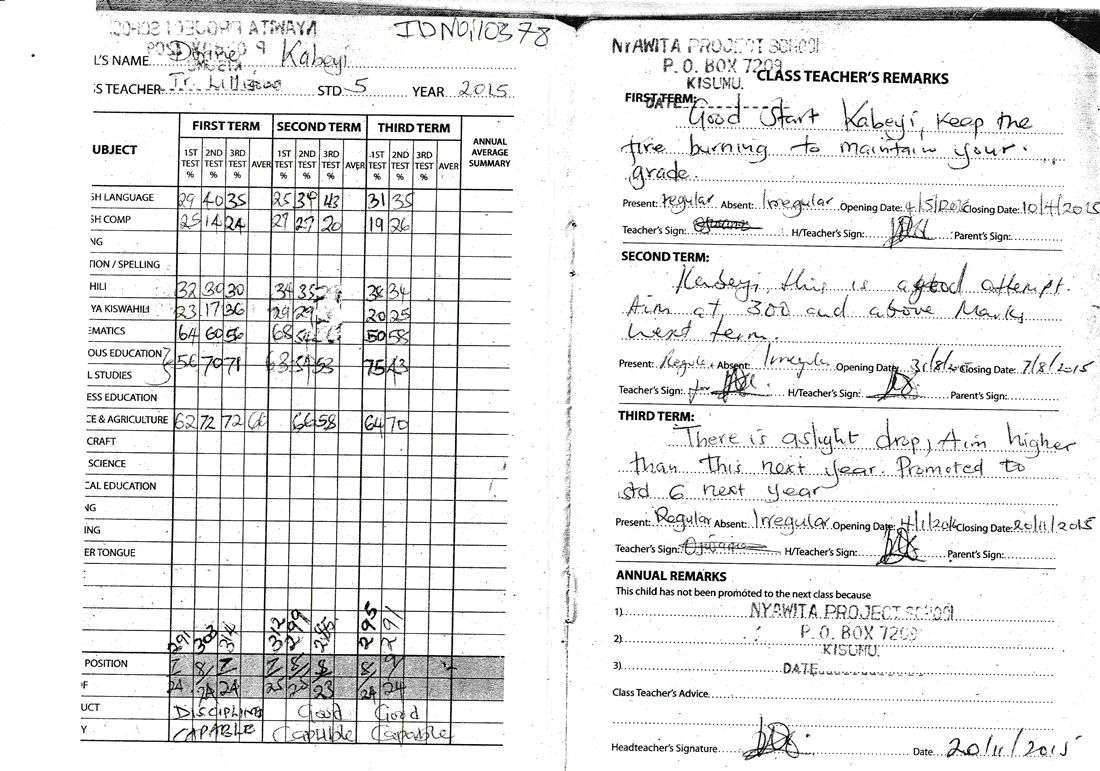 NYAWITA PROJECT SCHOOL
IDNO,110378
L'S NAME Kabeyi
S TEACHER Tr. STD 5 YEAR 2015
UBJECT FIRST TERM SECOND TERM THIRD TERM ANNUAL AVERAGE SUMMARY
1ST TEST % 2ND TEST % 3RD TEST % AVER 1ST TEST % 2ND TEST % 3RD TEST % AVER 1ST TEST % 2ND TEST % 3RD TEST % AVER
SH LANGUAGE 29 40 35 25 39 43 31 35
SH COMP 25 14 24 27 27 20 19 26
NG
TION / SPELLING
HILI 32 30 30 34 35 38 34
YA KISWAHILI 23 17 36 29 29 20 25
EMATICS 64 60 56 68 54 50 58
OUS EDUCATION 56 70 71 63 53 75 43
L STUDIES
ESS EDUCATION
CE & AGRICULTURE 62 72 72 66 66 58 64 70
CRAFT
SCIENCE
CAL EDUCATION
NG
ING
ER TONGUE
291 303 314 312 299 285 295 291
POSITION 7 8 7 7 8 8 8 9
F 24 24 24 25 25 23 24 24
UCT DISCIPLINE Good Good
Y CAPABLE Capable Capable
NYAWITA PROJECT SCHOOL
P. O. BOX 7209
KISUMU.
CLASS TEACHER'S REMARKS
FIRST TERM:
DATE
Good Start Kabeyi, keep the
fire burning to maintain your
grade
Present: regular Absent: Irregular Opening Date: 4/5/2015 Closing Date: 10/4/2015
Teacher's Sign: H/Teacher's Sign: Parent's Sign:
SECOND TERM:
Kabeyi, this is a good attempt.
Aim at 300 and above Marks
next term.
Present: Regular Absent: Irregular Opening Date: 31/8/2015 Closing Date: 7/8/2015
Teacher's Sign: for H/Teacher's Sign: Parent's Sign:
THIRD TERM:
There is a slight drop, Aim higher
than this next year. Promoted to
std 6 next year
Present: Regular Absent: Irregular Opening Date: 4/1/2016 Closing Date: 20/11/2015
Teacher's Sign: H/Teacher's Sign: Parent's Sign:
ANNUAL REMARKS
This child has not been promoted to the next class because
1)
NYAWITA PROJECT SCHOOL
P. O. BOX 7209
2)
KISUMU.
3)
DATE
Class Teacher's Advice
Headteacher's Signature Date 20/11/2015